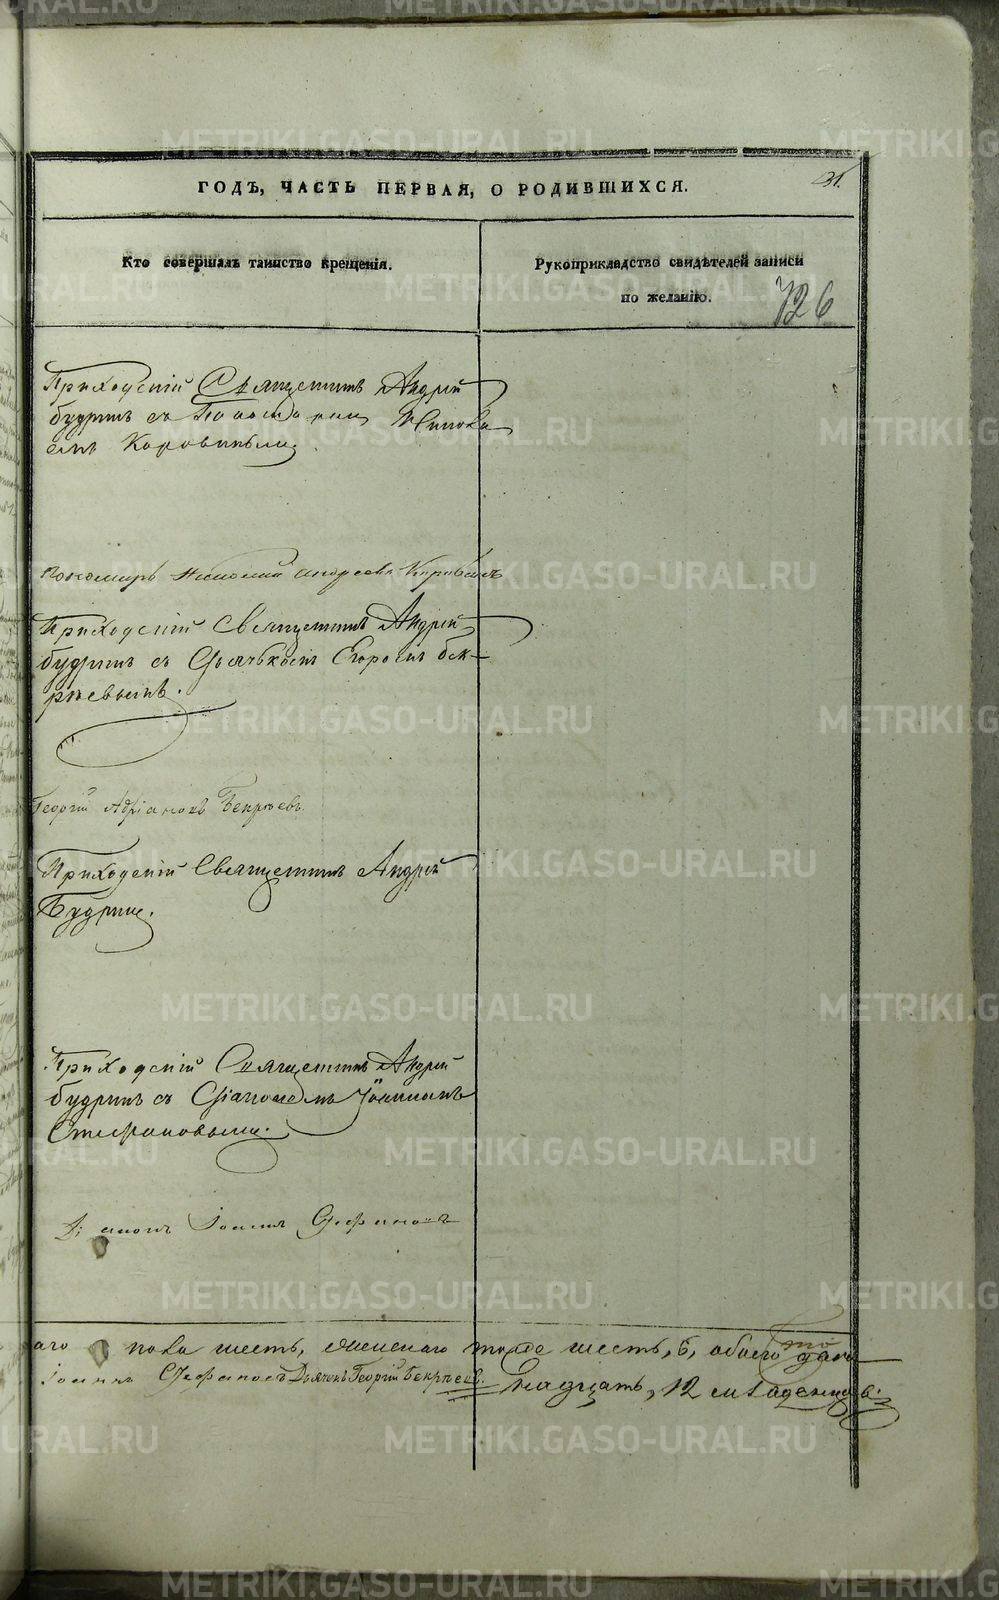 ГОДЪ, ЧАСТЬ ПЕРВАЯ, О РОДИВШИХСЯ.
31.
Кто совершалъ таинство крещенія.
Рукоприкладство свидѣтелей записи
по желанію.
726
Приходскій Священникъ Андрей
Будринъ съ Пономаремъ Никола
емъ Коровинымъ.
Пономарь Николай Андреевъ Коровинъ
Приходскій Священникъ Андрей
Будринъ съ Дьячкомъ Егоромъ Бек
рѣевымъ.
Георгій Адріановъ Бекрѣевъ.
Приходскій Священникъ Андрей
Будринъ.
Приходскій Священникъ Андрей
Будринъ съ Діакономъ Іоанномъ
Стефановымъ.
Діаконъ Іоаннъ Стефановъ
пола шесть, женскаго тоже шесть, 6, обоего
Іоаннъ Стефановъ Дьячекъ Георгій Бекрѣевъ.
надцать, 12 младенцовъ.
METRIKI.GASO-URAL.RU